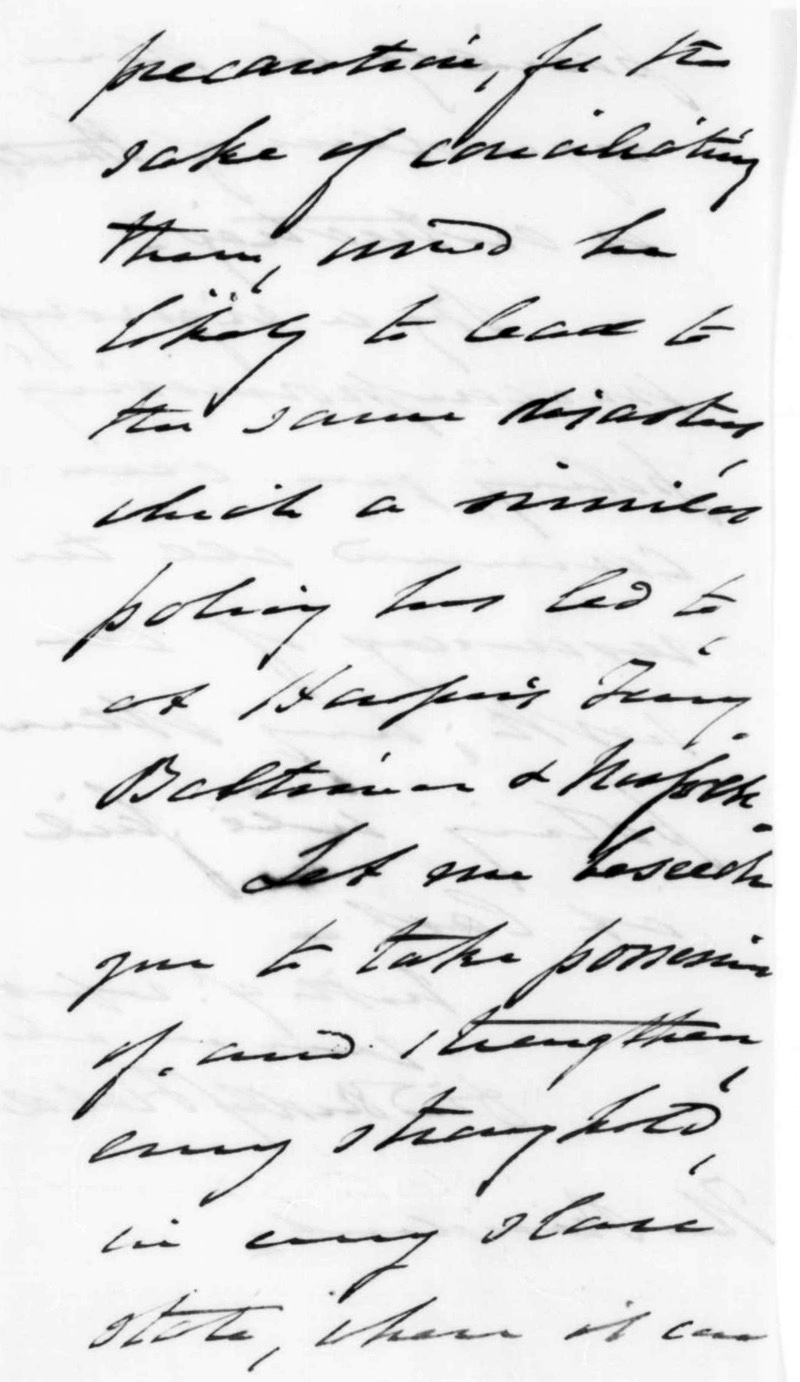 precaution, for the
sake of conciliating
them, would be
likely to lead to
the same disasters,
which a similar
policy has led to,
at Harper's Ferry,
Baltimore & Norfolk.
Let me beseech
you to take possession
of, and strengthen,
every stronghold,
in every slave
state, where it can